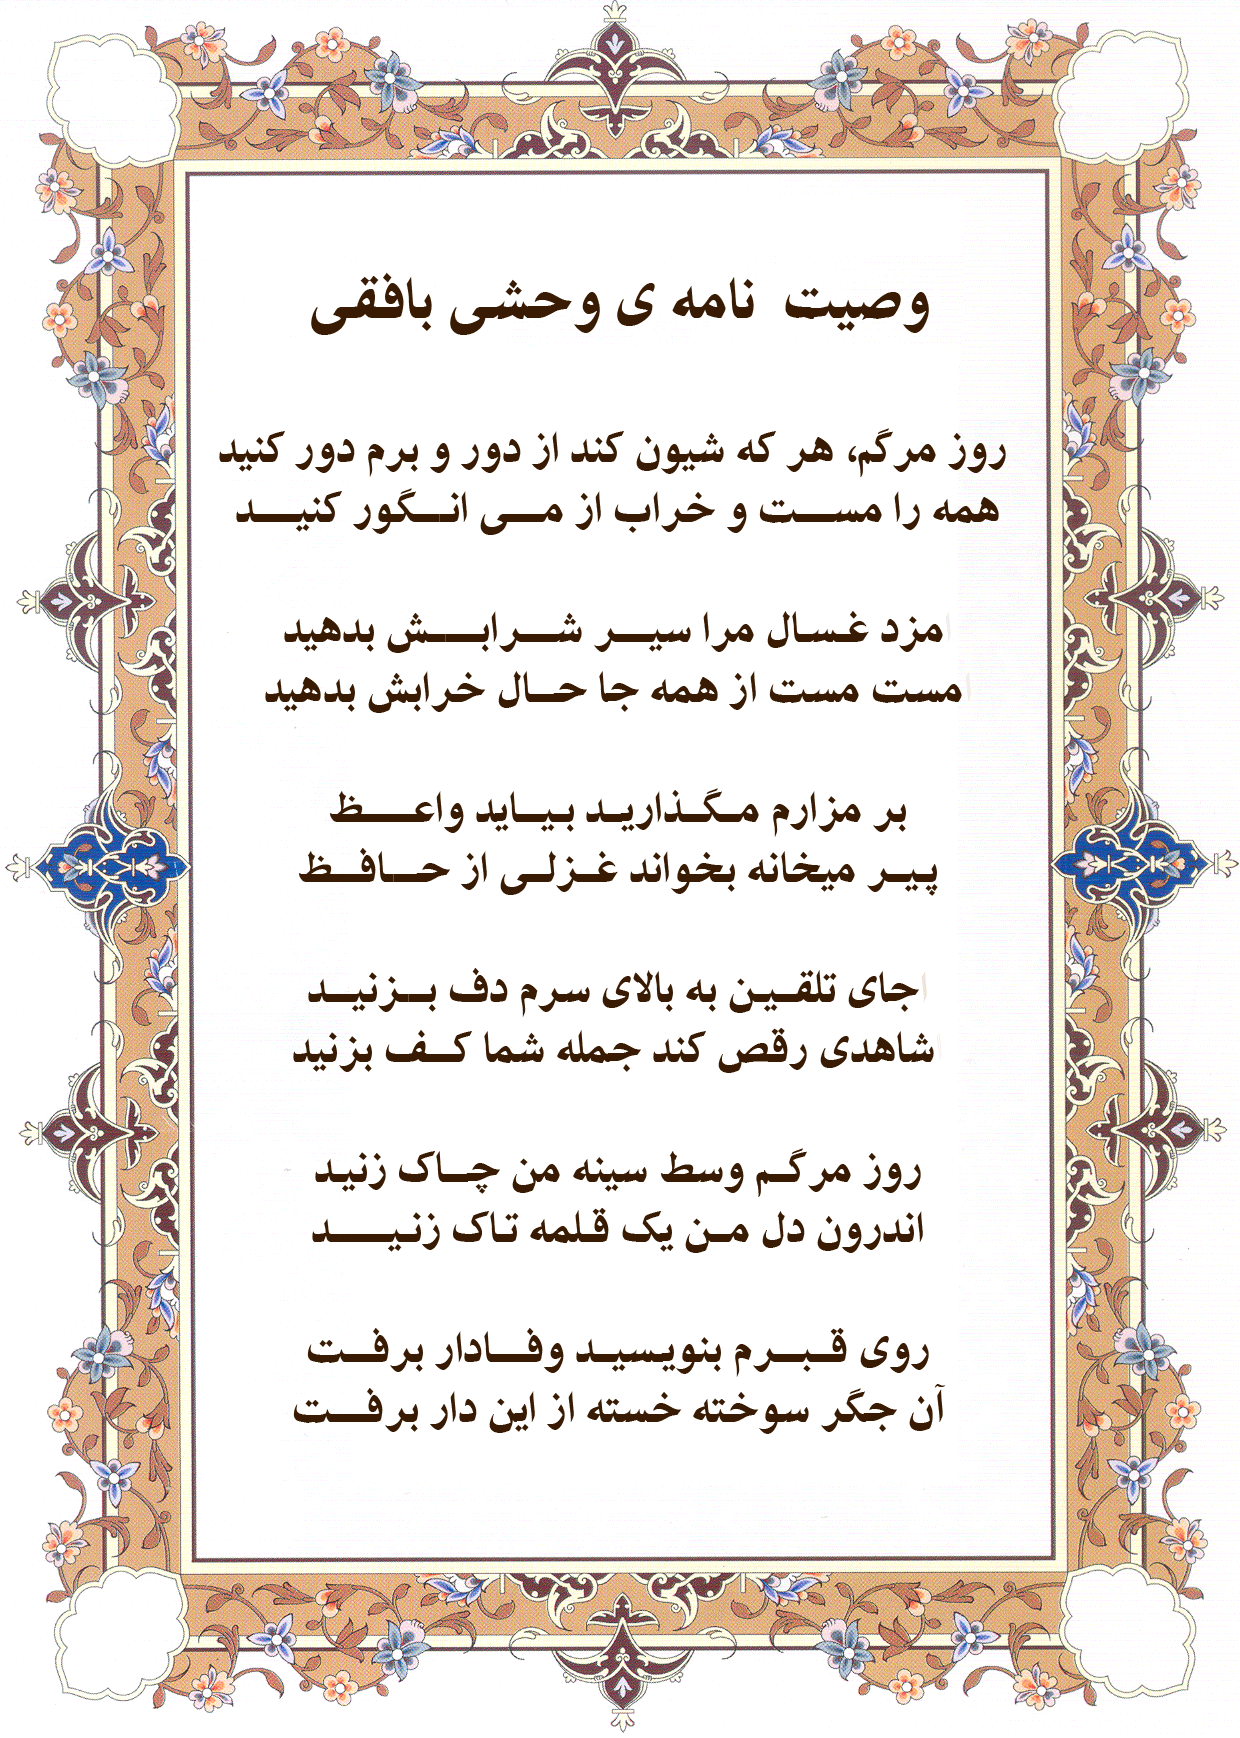 وصیت نامه ی وحشی بافقی
روز مرگم، هر که شیون کند از دور و برم دور کنید
همه را مست و خراب از می انگور کنید
مزد غسال مرا سیر شرابش بدهید
مست مست از همه جا حال خرابش بدهید
بر مزارم مگذارید بیاید واعظ
پیر میخانه بخواند غزلی از حافظ
جای تلقین به بالای سرم دف بزنید
شاهدی رقص کند جمله شما کف بزنید
روز مرگم وسط سینه من چاک زنید
اندرون دل من یک قلمه تاک زنید
روی قبرم بنویسید وفادار برفت
آن جگر سوخته خسته از این دار برفت